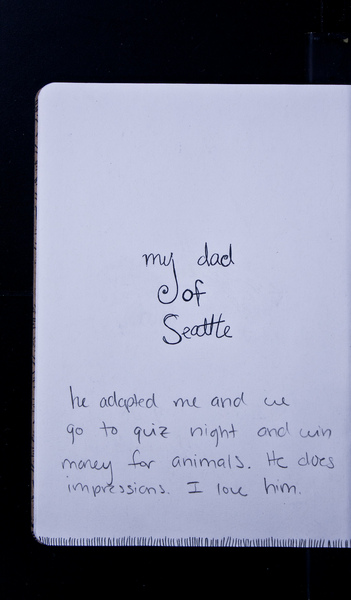 my dad
of
Seattle
he adapted me and we
go to quiz night and win
money for animals. He does
impressions. I love him.